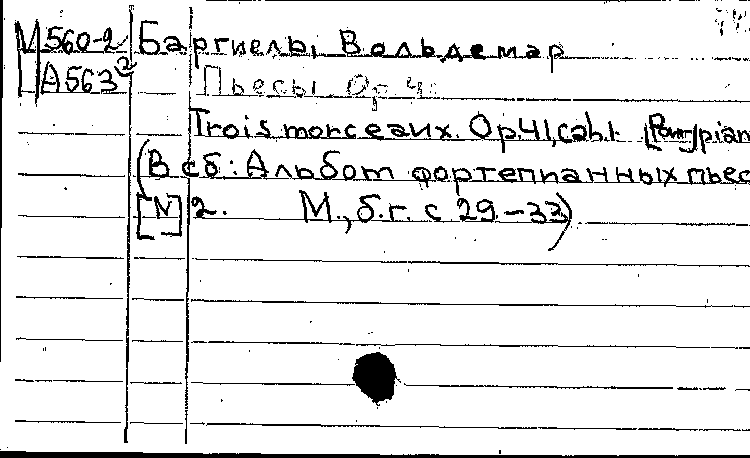 М 560-2 Баргиель, Вольдемар
А 563²
Пьесы Op. 4
Trois morceaux. Op. 41, cah. 1. [Pour] pian
(В сб: Альбом фортепианных пьес
[N] 2. М., б.г. с 29.-33)